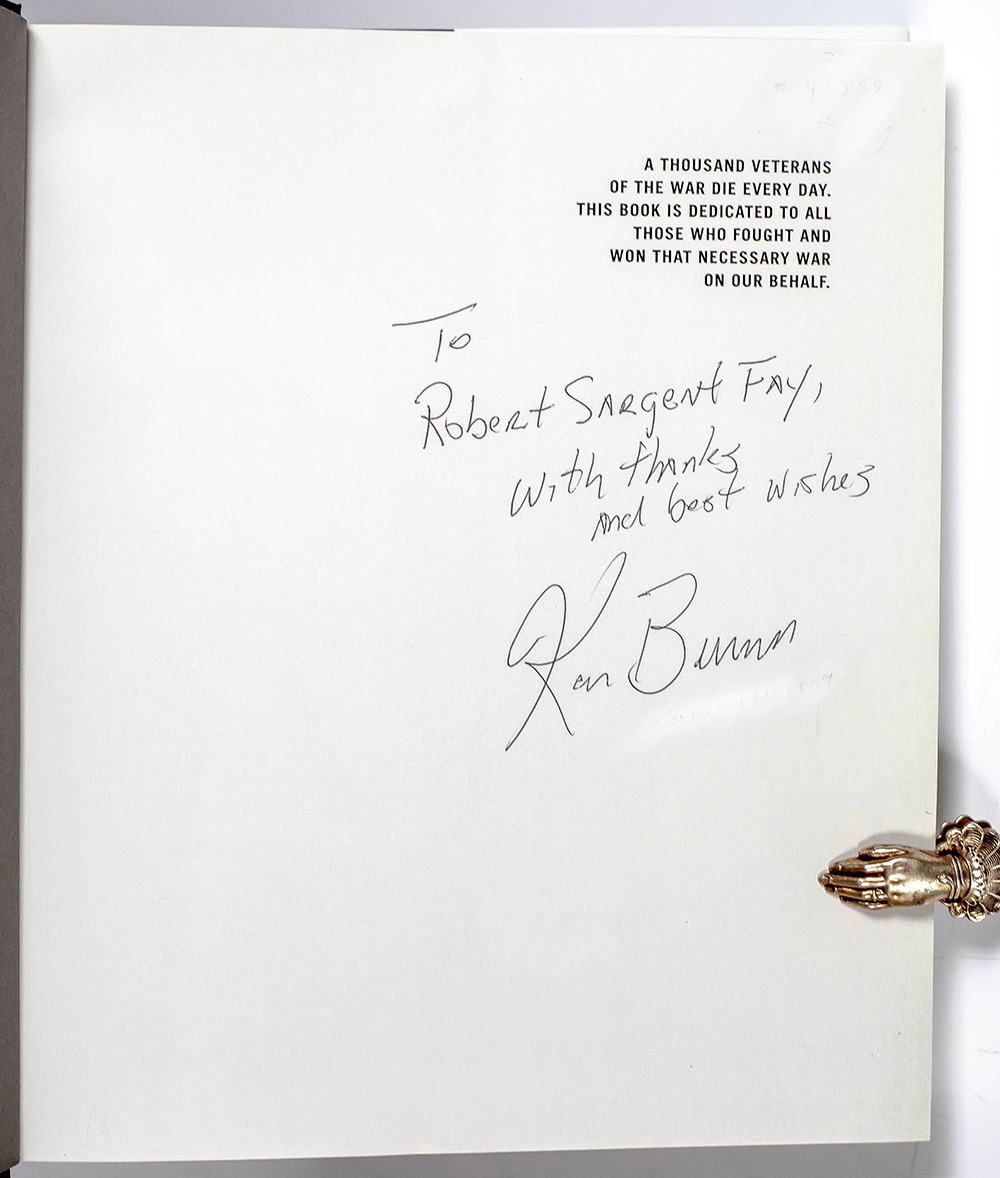 A THOUSAND VETERANS
OF THE WAR DIE EVERY DAY.
THIS BOOK IS DEDICATED TO ALL
THOSE WHO FOUGHT AND
WON THAT NECESSARY WAR
ON OUR BEHALF.
To
Robert Sargent Fay,
with thanks
and best wishes
Ken Burns